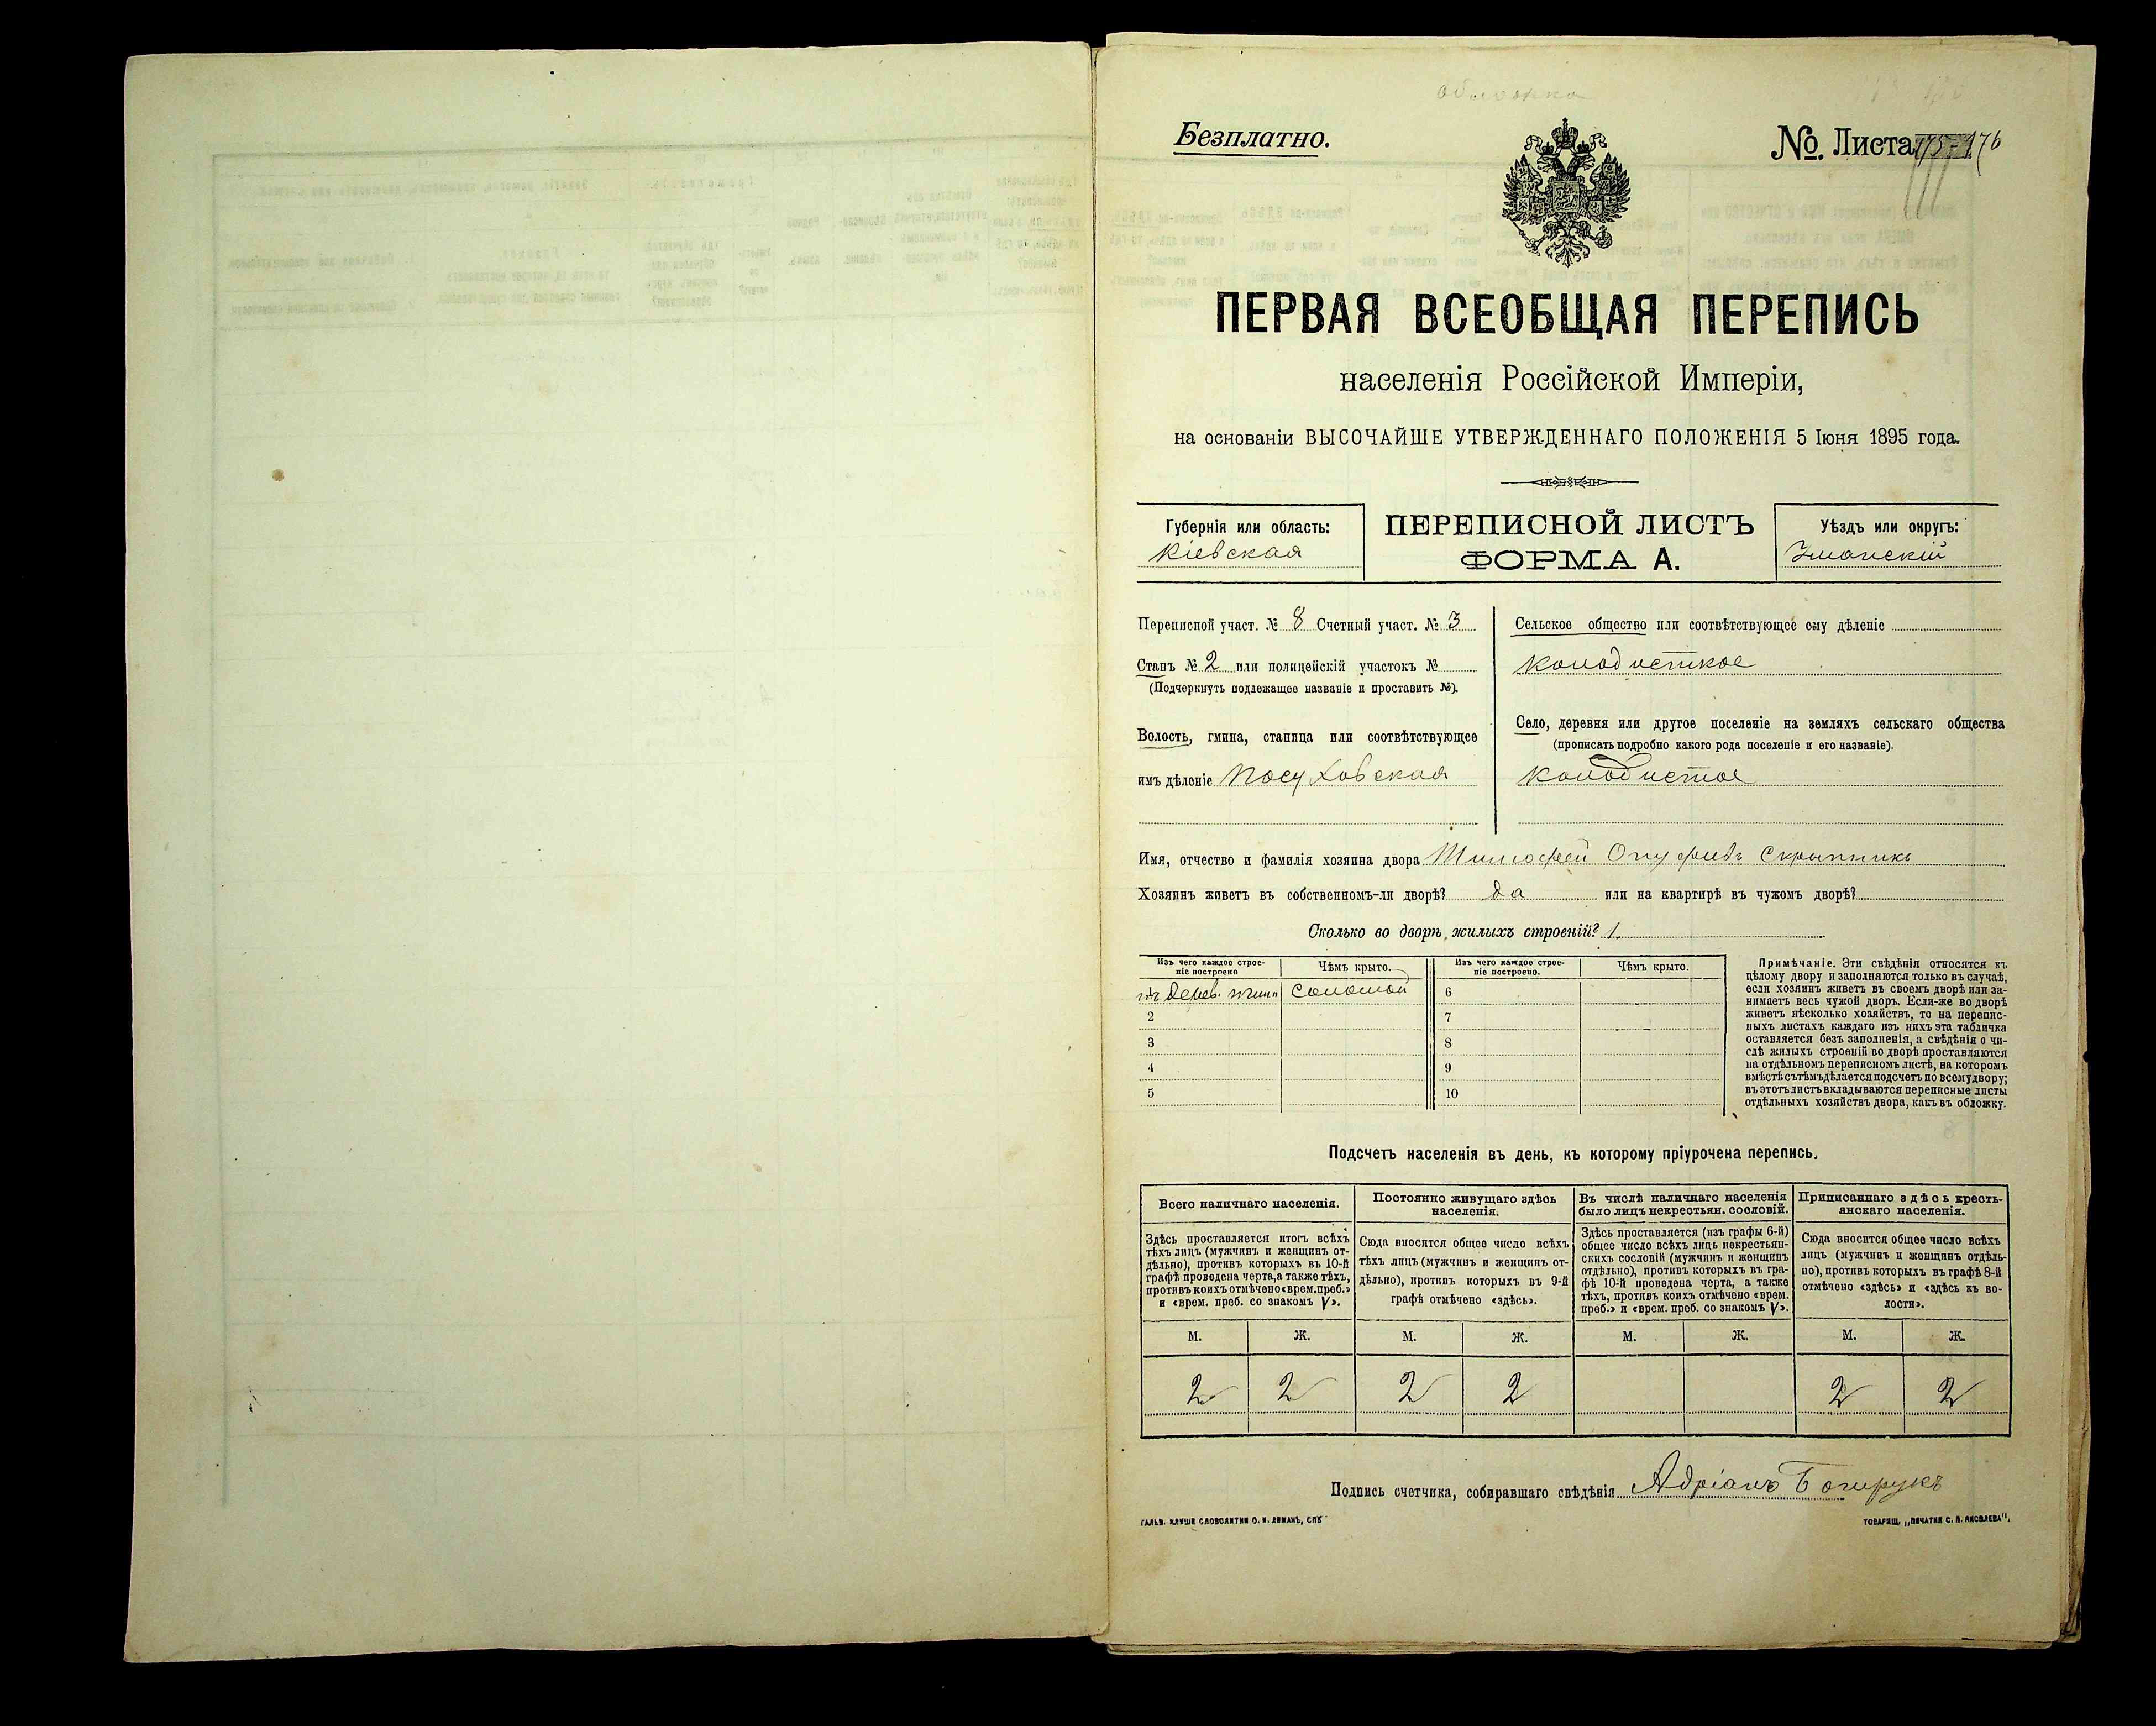 обложка
Безплатно.
№. Листа 175-176
ПЕРВАЯ ВСЕОБЩАЯ ПЕРЕПИСЬ
населенія Россійской Имперіи,
на основаніи ВЫСОЧАЙШЕ УТВЕРЖДЕННАГО ПОЛОЖЕНІЯ 5 Іюня 1895 года.
Губернія или область:
Кіевская
ПЕРЕПИСНОЙ ЛИСТЪ
ФОРМА А.
Уѣздъ или округъ:
Уманскій
Переписной участ. № 8 Счетный участ. № 3
Станъ № 2 или полицейскій участокъ №
(Подчеркнуть подлежащее названіе и проставить №).
Волость, гмина, станица или соотвѣтствующее
имъ дѣленіе Посуховская
Сельское общество или соотвѣтствующее ому дѣленіе
Колодисткое
Село, деревня или другое поселеніе на земляхъ сельскаго общества
(прописать подробно какого рода поселеніе и его названіе).
Колодистое
Имя, отчество и фамилія хозяина двора Тимофей Онуфріевъ Скрыпникъ
Хозяинъ живетъ въ собственномъ-ли дворѣ? да или на квартирѣ въ чужомъ дворѣ?
Сколько во дворѣ жилыхъ строеній? 1.
Изъ чего каждое строе-
ніе построено
Чѣмъ крыто.
Изъ чего каждое строе-
ніе построено.
Чѣмъ крыто.
изъ дерев. соломой
2
3
4
5
6
7
8
9
10
Примѣчаніе. Эти свѣдѣнія относятся къ
цѣлому двору и заполняются только въ случаѣ,
если хозяинъ живетъ въ своемъ дворѣ или за-
нимаетъ весь чужой дворъ. Если-же во дворѣ
живетъ нѣсколько хозяйствъ, то на перепис-
ныхъ листахъ каждаго изъ нихъ эта табличка
оставляется безъ заполненія, а свѣдѣнія о чи-
слѣ жилыхъ строеній во дворѣ проставляются
на отдѣльномъ переписномъ листѣ, на которомъ
вмѣстѣ съ тѣмъ дѣлается подсчетъ по всему двору;
въ этотъ листъ вкладываются переписные листы
отдѣльныхъ хозяйствъ двора, какъ въ обложку.
Подсчетъ населенія въ день, къ которому пріурочена перепись.
Всего наличнаго населенія.
Здѣсь проставляется итогъ всѣхъ
тѣхъ лицъ (мужчинъ и женщинъ от-
дѣльно), противъ которыхъ въ 10-й
графѣ проведена черта, а также тѣхъ,
противъ коихъ отмѣчено «врем. преб.»
и «врем. преб. со знакомъ V».
Постоянно живущаго здѣсь
населенія.
Сюда вносится общее число всѣхъ
тѣхъ лицъ (мужчинъ и женщинъ от-
дѣльно), противъ которыхъ въ 9-й
графѣ отмѣчено «здѣсь».
Въ числѣ наличнаго населенія
было лицъ некрестьян. сословій.
Здѣсь проставляется (изъ графы 6-й)
общее число всѣхъ лицъ некрестьян-
скихъ сословій (мужчинъ и женщинъ
отдѣльно), противъ которыхъ въ гра-
фѣ 10-й проведена черта, а также
тѣхъ, противъ коихъ отмѣчено «врем.
преб.» и «врем. преб. со знакомъ V».
Приписаннаго здѣсь кресть-
янскаго населенія.
Сюда вносится общее число всѣхъ
лицъ (мужчинъ и женщинъ отдѣль-
но), противъ которыхъ въ графѣ 8-й
отмѣчено «здѣсь» и «здѣсь въ во-
лости».
М. Ж. М. Ж. М. Ж. М. Ж.
2 2 2 2 2 2
Подпись счетчика, собиравшаго свѣдѣнія Адріанъ
ГАЛЬВ. КЛИШЕ СЛОВОЛИТНИ О. И. ЛЕМАНЪ, СПБ
ТОВАРИЩ. „ПЕЧАТНЯ С. П. ЯКОВЛЕВА".